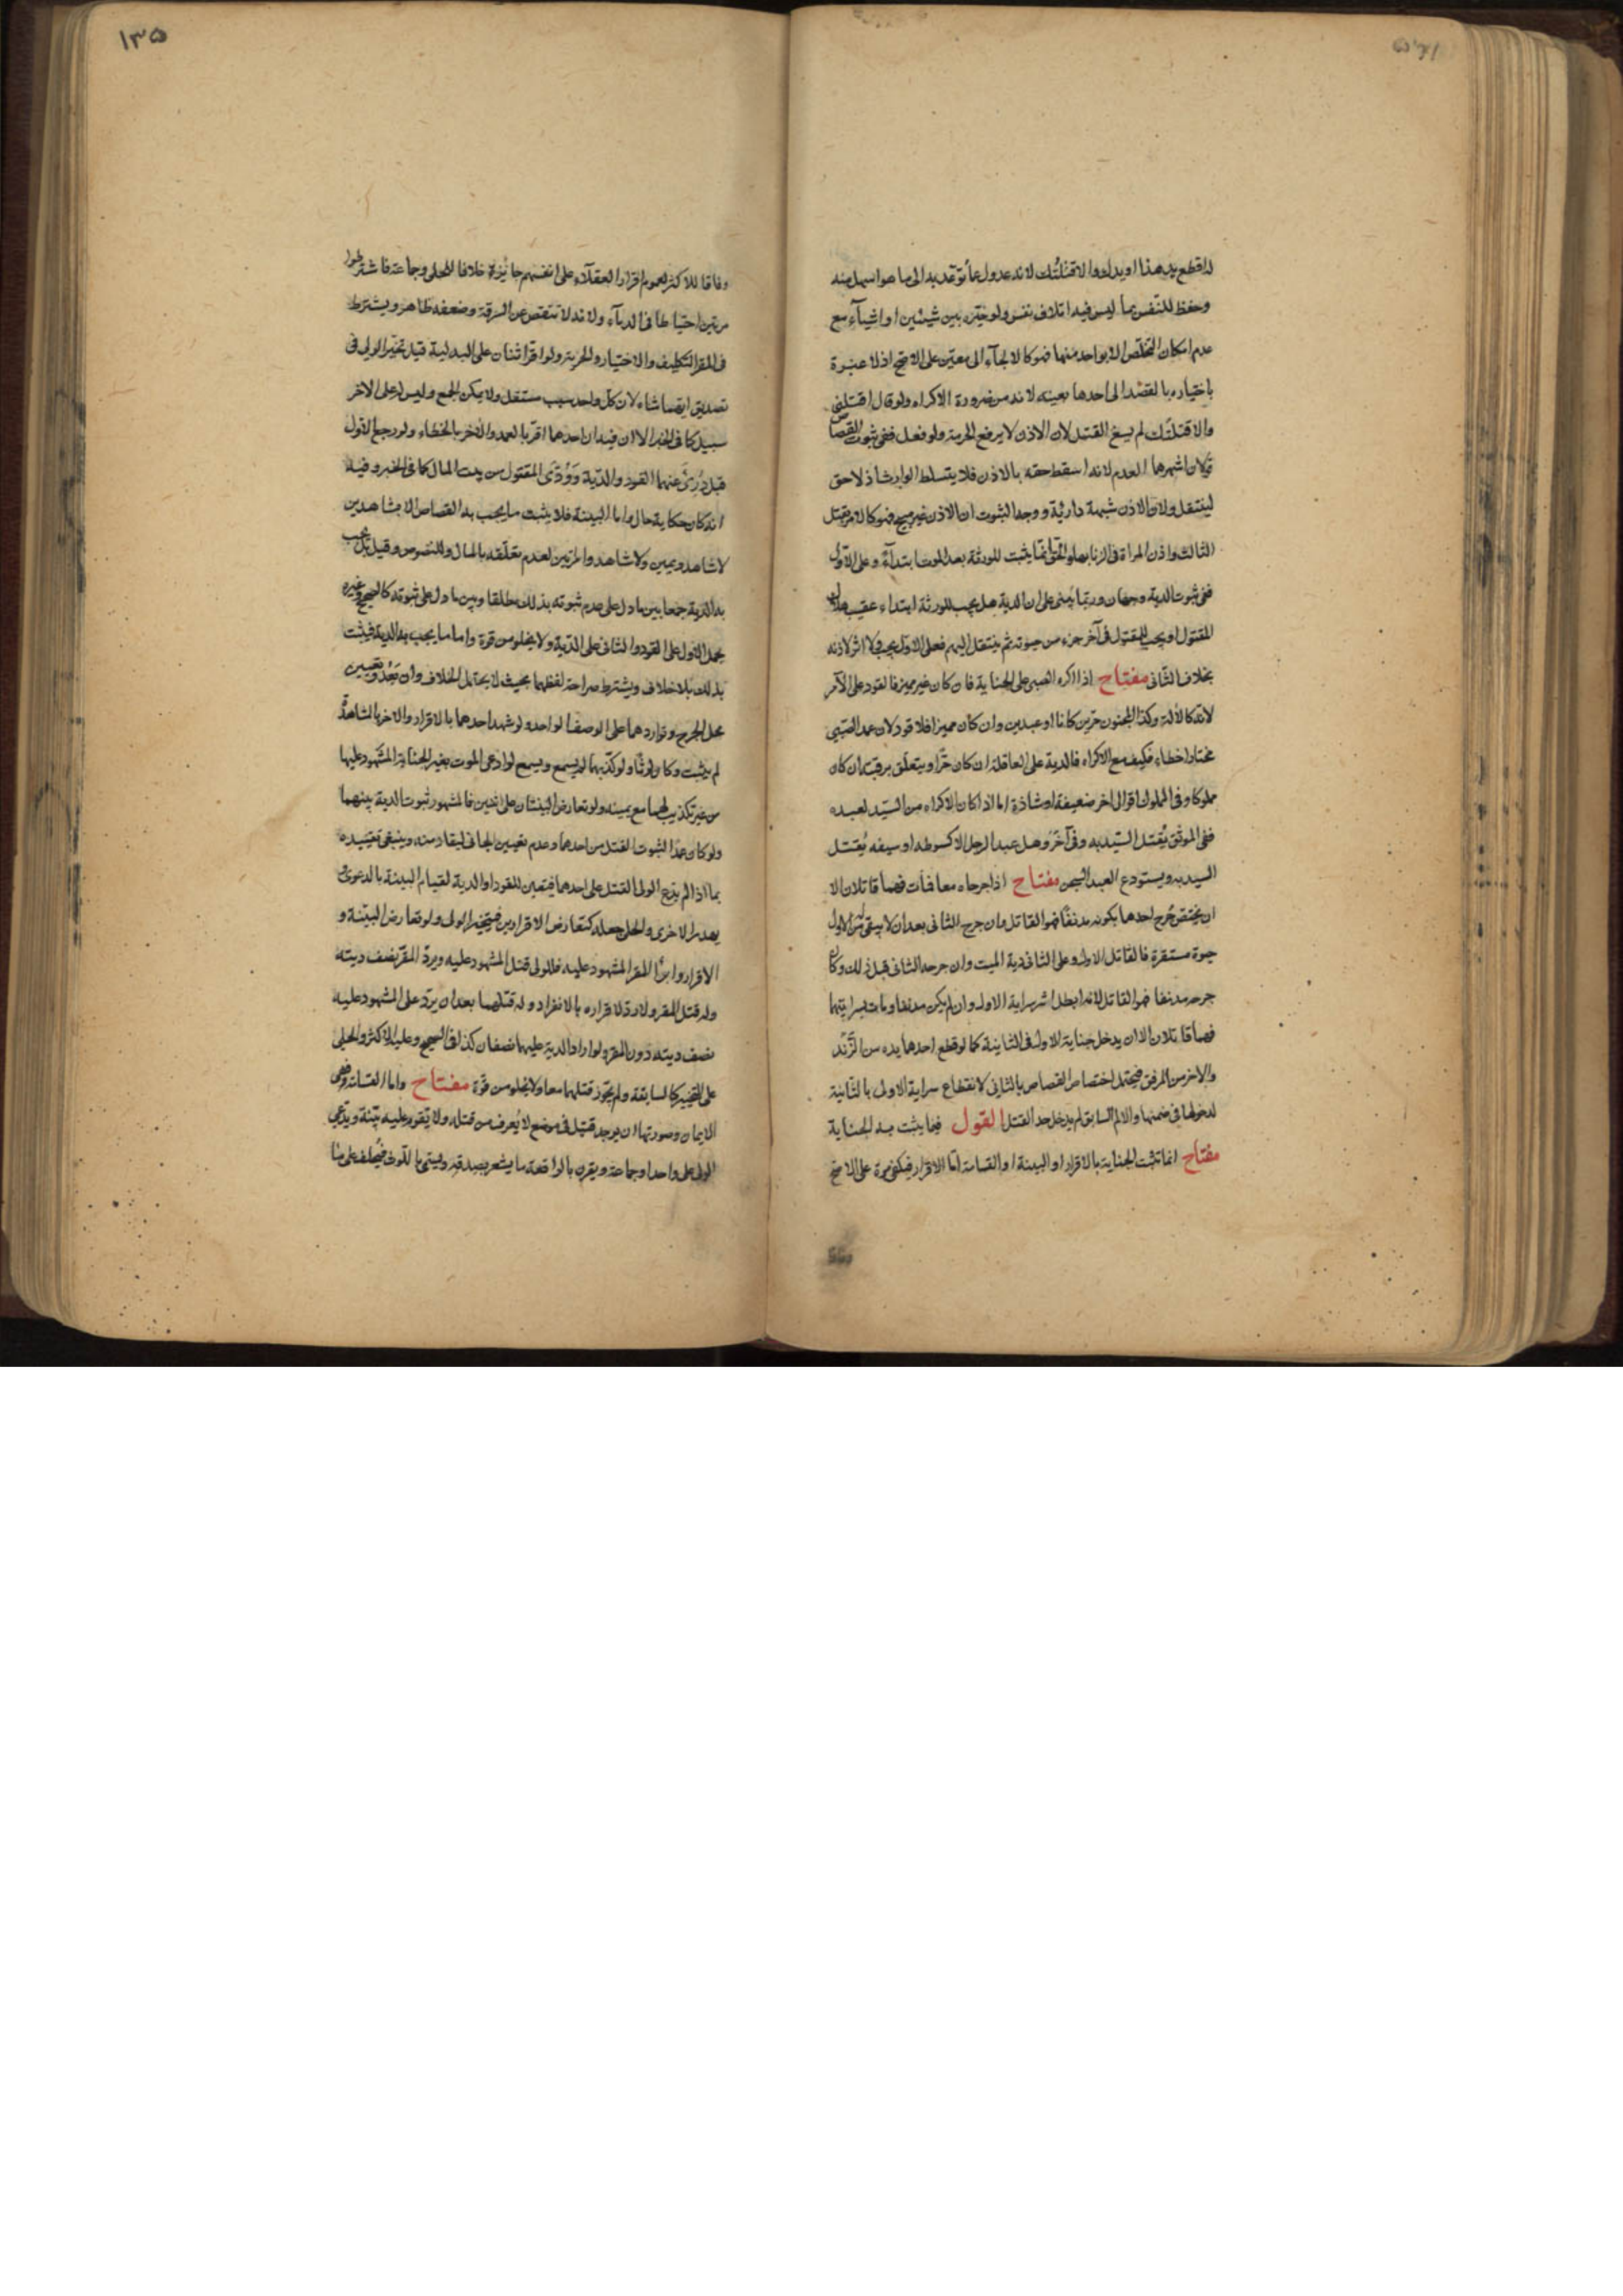 له اقطع يد هذا او يدك والا قتلتك لانه عدول عما توعّد به الى ما هو اسهل منه
وحفظ للنّفس بما ليس فيه اتلاف نفس ولو خيّره بين شيئين او اشيآء مع
عدم امكان التخلّص الا بواحد منها فهو كالالجآء الى معيّن على الاصح اذ لا عبرة
باختياره بالقصد الى احدها بعينه لانه من ضرورة الاكراه ولو قال اقتلنى
والا قتلتك لم يسغ القتل لان الاذن لا يرفع الحرمة ولو فعل ففى ثبوت القصاص
قولان اشهرها العدم لانه اسقط حقه بالاذن فلا يتسلط الوارث اذ لا حق
لينتقل ولان الاذن شبهة دارئة ووجه الثبوت ان الاذن غير مبيح فهو كالامر بقتل
الثالث واذن المراة فى الزنا بها والحق انما يثبت للورثة بعد الموت ابتدآءً وعلى الاوّل
ففى ثبوت الدية وجهان وربّما يُبنى على ان الدية هل يجب للورثة ابتداء عقيب هلاك
المقتول او يجب للمقتول فى آخر جزء من حيوته ثم ينتقل اليهم فعلى الاول يجب ولا اثر لاذنه
بخلاف الثانى مفتاح اذا اكره الصبى على الجناية فان كان غير مميز فالقود على الآمر
لانّه كالالة وكذا المجنون حرّين كانا او عبدين وان كان مميزا فلا قود لان عمد الصّبى
مختارا خطاء فكيف مع الاكراه فالدية على العاقلة ان كان حرّا ويتعلّق برقبته ان كان
مملوكا وفى المملوك اقوال اخر ضعيفة او شاذة اما اذا كان الاكراه من السّيد لعبده
ففى الموثق يُقتل السّيد به وفى آخر وهل عبد الرجل الا كسوطه او سيفه يُقتل
السيد به ويستودع العبد السجن مفتاح اذا جرحاه معا فمات فهما قاتلان الا
ان يختص جُرح احدهما بكونه مدنفًا فهو القاتل وان جرح الثانى بعد ان لا يبقى اثر الاول
حيوة مستقرة فالقاتل الاول وعلى الثانى دية الميت وان جرحه الثانى قبل ذلك وكان
جرحه مدنفا فهو القاتل لانه ابطل اثر سراية الاول وان لم يكن مدنفا ومات بسرايتهما
فهما قاتلان الا ان يدخل جناية الاول فى الثانية كما لو قطع احدهما يده من الزّند
والاخر من المرفق فيحتمل اختصاص القصاص بالثانى لانقطاع سراية الاولى بالثّانية
لدخولها فى ضمنها والالم السابق لم يدخل حد القتل القول فيما يثبت به الجناية
مفتاح انما تثبت الجناية بالاقرار او البينة او القسامة امّا الاقرار فيكفى مرة على الاصح
١٣۵
وفاقا للاكثر لعموم اقرار العقلآء على انفسهم جائزة خلافا للحلى وجماعة فاشترطوا
مرتين احتياطا فى الدمآء ولانه لا تنقص عن السرقة وضعفه ظاهر ويشترط
فى المقر التكليف والاختيار والحرية ولو اقرّ اثنان على البدلية قيل تخيّر الولى فى
تصديق ايهما شاء لان كلّ واحد سبب مستقل ولا يمكن الجمع وليس له على الاخر
سبيل كما فى الخبر الا ان فيه ان احدهما اقرّ بالعمد والاخر بالخطاء ولو رجع الاول
قيل دُرئ عنهما القود والدّية وودى المقتول من بيت المال كما فى الخبر وفيه
انه كان حكاية حال واما البينة فلا يثبت ما يجب به القصاص الا بشاهدين
لا شاهد ويمين ولا شاهد وامراتين لعدم تعلّقه بالمال وللنصوص وقيل بل يجب
به الدّية جمعا بين ما دل على عدم ثبوته بذلك مطلقا وبين ما دل على ثبوته كالصحيح وغيره
بحمل الاول على القود والثانى على الدّية ولا يخلو من قوة واما ما يجب به الدية فيثبت
بذلك بلا خلاف ويشترط صراحة لفظهما بحيث لا يحتمل الخلاف وان يتّحد وتعيين
محل الجرح وتواردهما على الوصف الواحد ولو شهد احدهما بالاقرار والاخر بالمشاهدة
لم يثبت وكان لوثًا ولو كذّبهما لم يسمع ويسمع لو ادعى الموت بغير الجناية المشهود عليها
من غير تكذيب لهما مع يمينه ولو تعارض البينتان على اثنين فالمشهور ثبوت الدية بينهما
ولو كان عمدًا لثبوت القتل من احدهما وعدم تعيين الجانى ليقاد منه وينبغى تقييده
بما اذا لم يدّع الولى القتل على احدهما فيتعين للقود او الدية لقيام البينة بالدعوى
يهدر الاخرى والحلى جعله كتعارض الاقرارين فيتخير الولى ولو تعارض البيّنة و
الاقرار وابرأ المقر المشهود عليه فللولى قتل المشهود عليه ويردّ المقرّ نصف ديته
وله قتل المقر ولا ردّ لاقراره بالانفراد وله قتلهما بعد ان يردّ على المشهود عليه
نصف ديته دون المقر ولو اراد الدية عليهما نصفان كذا فى الصحيح وعليه الاكثر والحلى
على التخيير كالسابقة ولم يجوّز قتلهما معا ولا يخلو من قوّة مفتاح واما القسامة وهى
الايمان وصورتها ان يوجد قتيل فى موضع لا يُعرف من قتله ولا تقوم عليه بيّنة ويدّعى
الولى على واحد او جماعة ويقرن بالواقعة ما يشعر بصدقه ويسمى باللّوث فيُحلف على ما